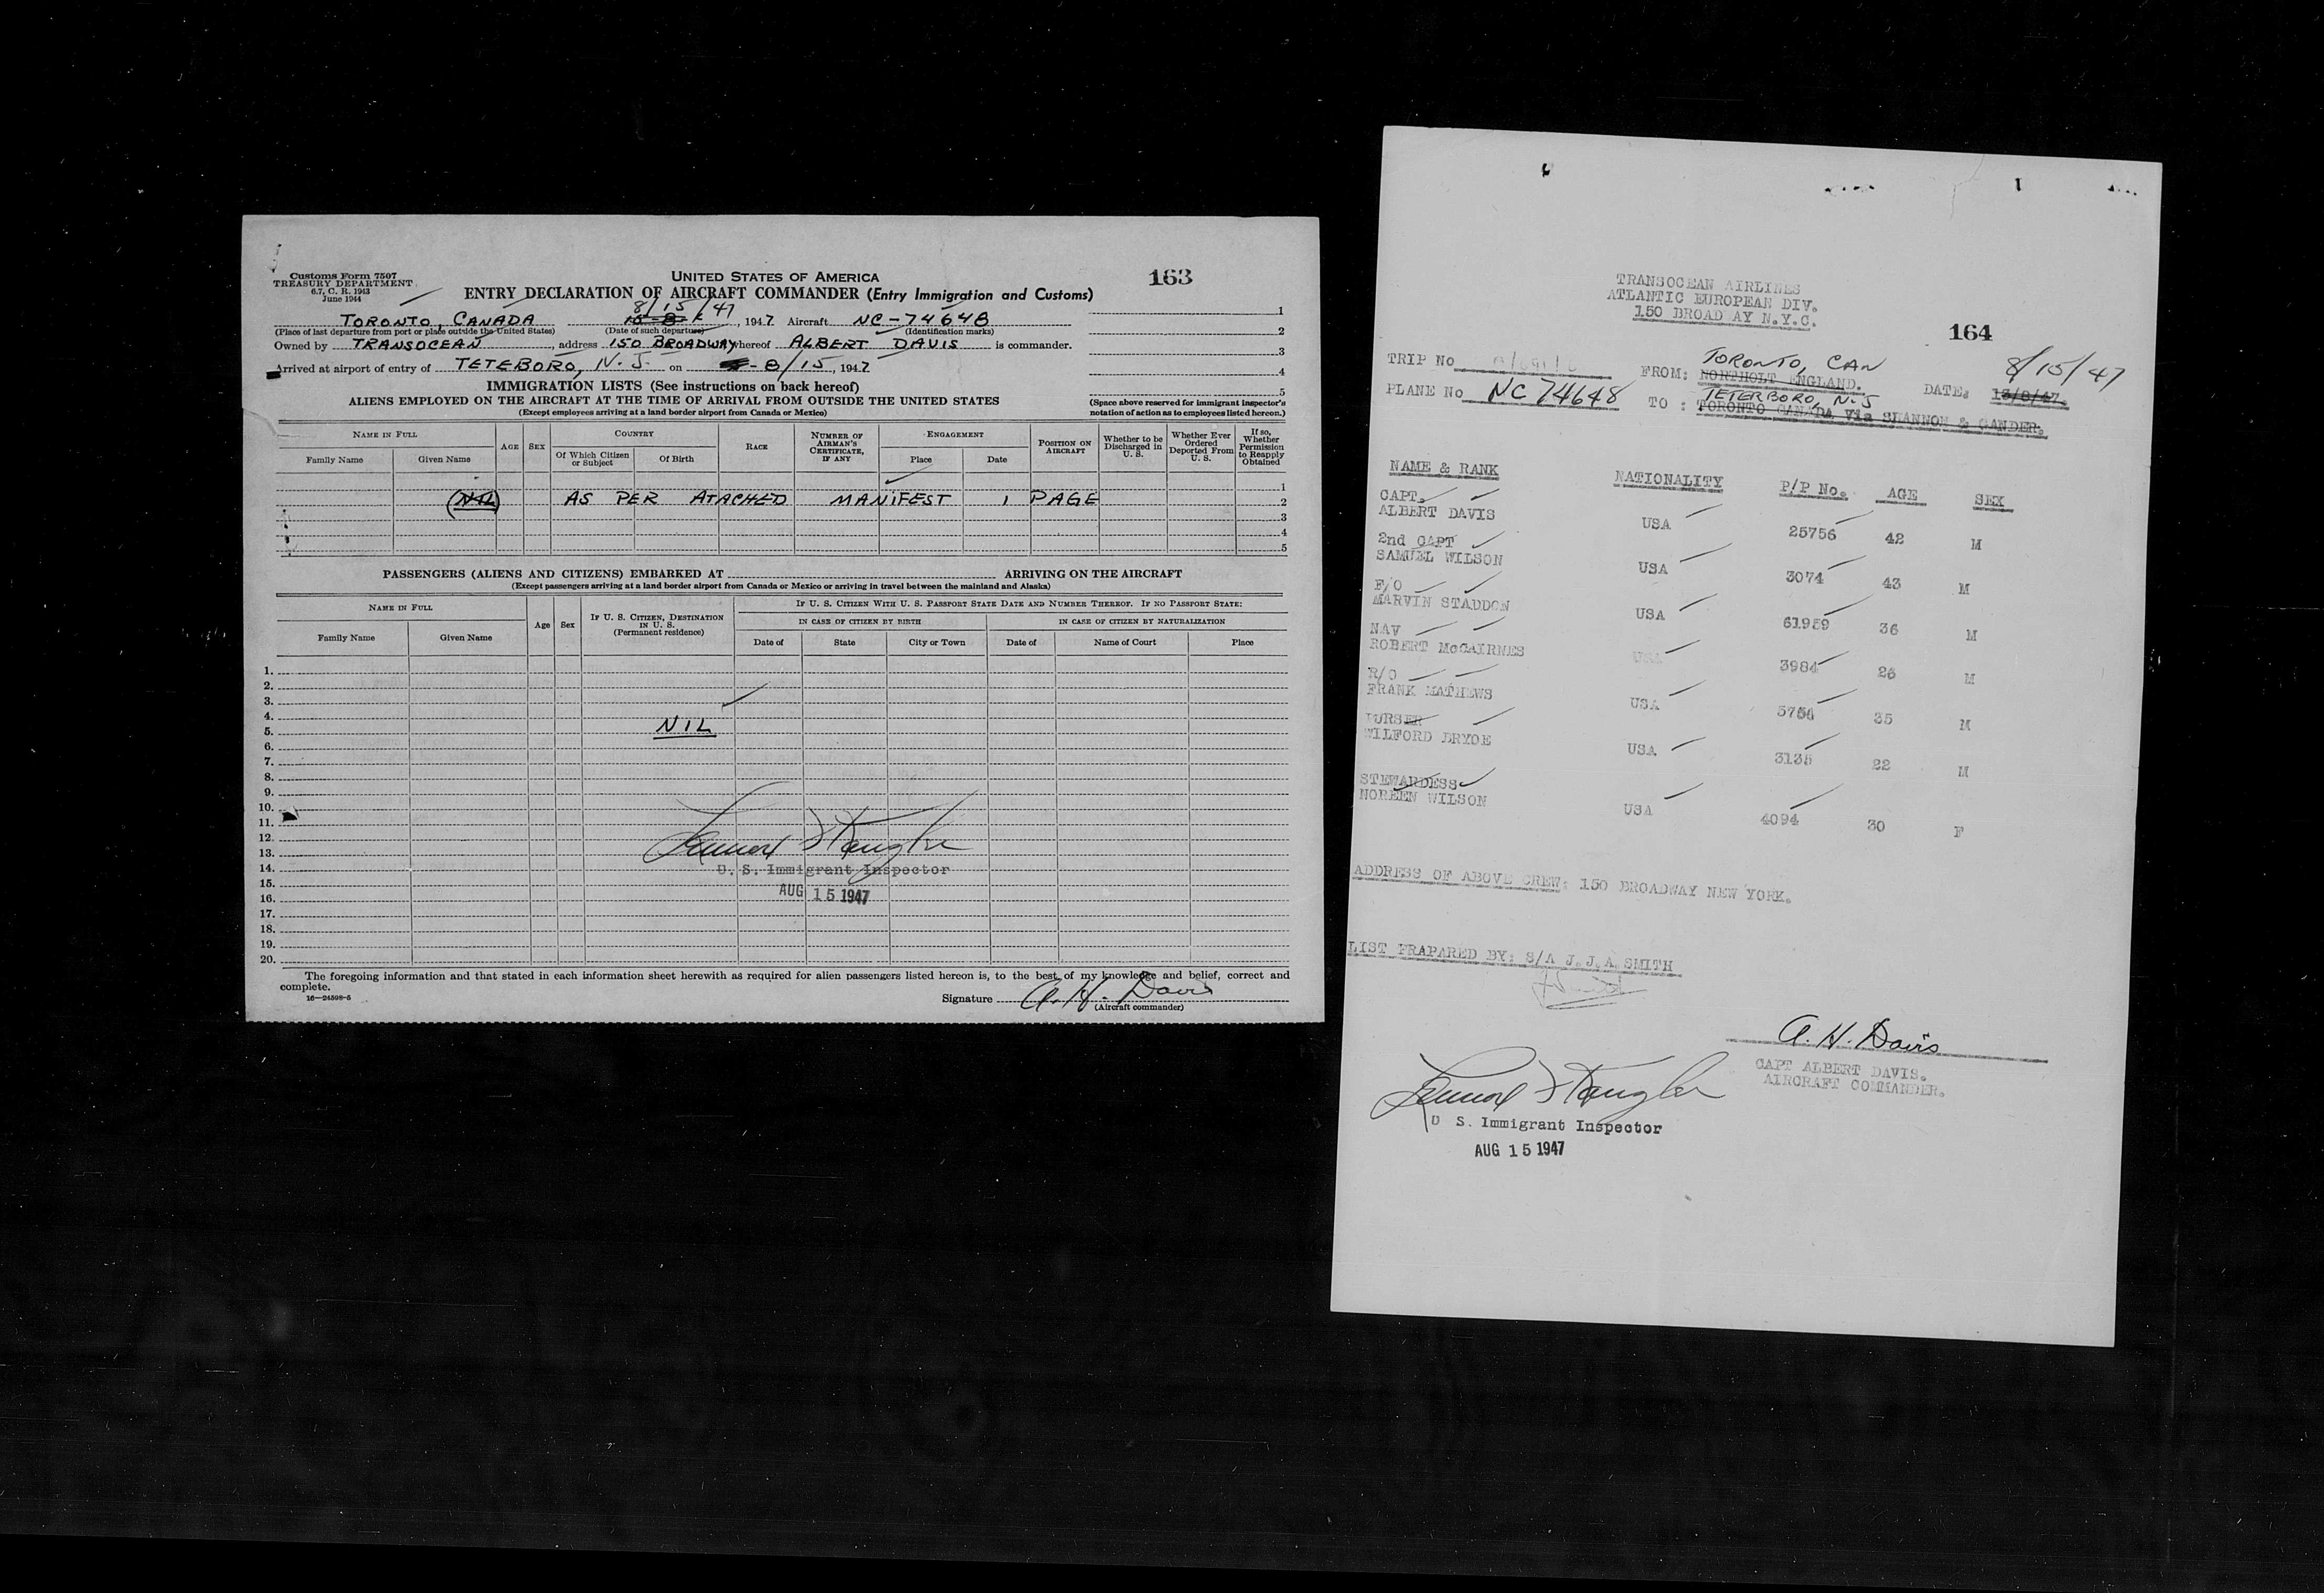 Customs Form 7507
TREASURY DEPARTMENT
6.7, C. R. 1943
June 1944
UNITED STATES OF AMERICA
163
ENTRY DECLARATION OF AIRCRAFT COMMANDER (Entry Immigration and Customs)
8/15/47
TORONTO, CANADA , 1947. Aircraft NC-74648
(Place of last departure from port or place outside the United States) (Date of such departure) (Identification marks)
Owned by TRANSOCEAN , address 150 BROADWAY whereof ALBERT DAVIS is commander.
Arrived at airport of entry of TETEBORO, N.J. on 8/15, 1947
1
2
3
4
5
IMMIGRATION LISTS (See instructions on back hereof)
ALIENS EMPLOYED ON THE AIRCRAFT AT THE TIME OF ARRIVAL FROM OUTSIDE THE UNITED STATES
(Except employees arriving at a land border airport from Canada or Mexico)
(Space above reserved for immigrant inspector's
notation of action as to employees listed hereon.)
NAME IN FULL
Family Name Given Name
AGE SEX
COUNTRY
Of Which Citizen or Subject Of Birth
RACE
NUMBER OF AIRMAN'S CERTIFICATE, IF ANY
ENGAGEMENT
Place Date
POSITION ON AIRCRAFT
Whether to be Discharged in U. S.
Whether Ever Ordered Deported From U. S.
If so, Whether Permission to Reapply Obtained
1
(NIL) AS PER ATACHED MANIFEST 1 PAGE 2
3
4
5
PASSENGERS (ALIENS AND CITIZENS) EMBARKED AT ARRIVING ON THE AIRCRAFT
(Except passengers arriving at a land border airport from Canada or Mexico or arriving in travel between the mainland and Alaska)
NAME IN FULL
Family Name Given Name
Age Sex
IF U. S. CITIZEN, DESTINATION IN U. S. (Permanent residence)
IF U. S. CITIZEN WITH U. S. PASSPORT STATE DATE AND NUMBER THEREOF. IF NO PASSPORT STATE:
IN CASE OF CITIZEN BY BIRTH IN CASE OF CITIZEN BY NATURALIZATION
Date of State City or Town Date of Name of Court Place
1.
2.
3.
4.
5. NIL
6.
7.
8.
9.
10.
11.
12.
13.
14. U. S. Immigrant Inspector
15.
16. AUG 15 1947
17.
18.
19.
20.
The foregoing information and that stated in each information sheet herewith as required for alien passengers listed hereon is, to the best of my knowledge and belief, correct and
complete.
16—24598-5
Signature A. H. Davis
(Aircraft commander)
TRANSOCEAN AIRLINES
ATLANTIC EUROPEAN DIV.
150 BROAD AY N.Y.C.
164
TRIP No
TORONTO, CAN
FROM: NORTHOLT ENGLAND.
8/15/47
DATE: 13/8/47.
PLANE No NC 74648
TETERBORO, N.J
TO : TORONTO CANADA Via SHANNON & GANDER.
NAME & RANK NATIONALITY P/P No. AGE SEX
CAPT.
ALBERT DAVIS USA 25756 42 M
2nd CAPT
SAMUEL WILSON USA 3074 43 M
F/O
MARVIN STADDON USA 61959 36 M
NAV
ROBERT McCAIRNES USA 3984 26 M
R/O
FRANK MATHEWS USA 3756 35 M
PURSER
WILFORD BRYCE USA 3135 22 M
STEWARDESS
NOREEN WILSON USA 4094 30 F
ADDRESS OF ABOVE CREW: 150 BROADWAY NEW YORK.
LIST PRAPARED BY: S/A J.J.A.SMITH
A. H. Davis
CAPT ALBERT DAVIS.
AIRCRAFT COMMANDER.
U S. Immigrant Inspector
AUG 15 1947